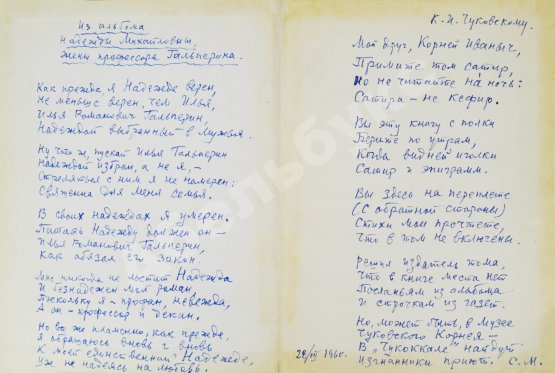 Из альбома
Надежды Михайловны,
жены профессора Гальперина.
Как прежде я Надежде верен,
Не меньше верен, чем Илья,
Илья Романович Гальперин,
Надеждой выбранный в мужья.
Ну что ж, пускай Илья Гальперин
Надеждой избран, а не я, –
Стреляться с ним я не намерен:
Священна для меня семья.
В своих надеждах я умерен.
Питать Надежду должен он –
Илья Романович Гальперин,
Как обязал его закон.
Мне никогда не льстит Надежда
И безнадежен мой роман,
Поскольку я – профан, невежда,
А он – профессор и декан.
Но вы же пламенно, как прежде,
Я обращаюсь вновь и вновь
К моей единственной Надежде,
Уже не надеясь на любовь.
К. И. Чуковскому.
Мой друг, Корней Иваныч,
Примите том сатир,
Но не читайте на ночь:
Сатира – не кефир.
Вы эту книгу с полки
Берите по утрам,
Когда видней иголки
Сатир и эпиграмм.
Вы здесь на переплете
(С обратной стороны)
Стихи мои прочтете,
Что в том не включены.
Решил издатель тома,
Что в книге места нет
Посланьям из альбома
И строчкам из газет.
Но, может быть, в Музее
Чуковского Корнея –
В "Чукоккале" найдут
Изгнанники приют. С. М.
1960.